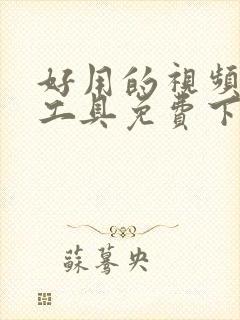 好用的視頻
工具免費下
蘇驀央